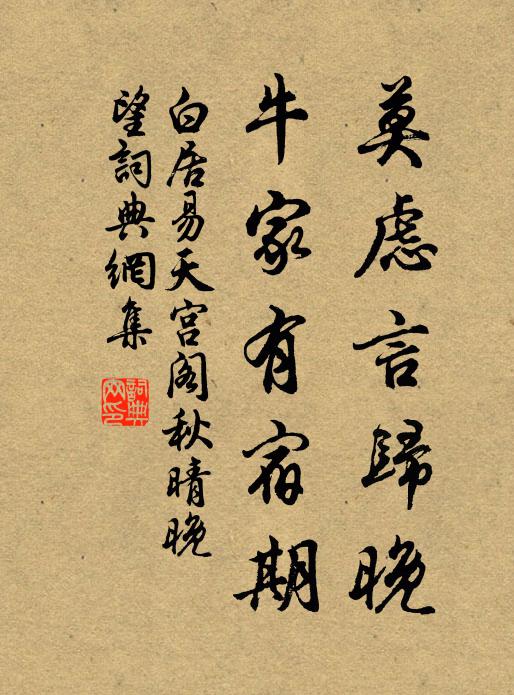 莫慮言歸晚
牛家有宿期
白居易天宫阁秋晴晚
望詞典網集
詞典